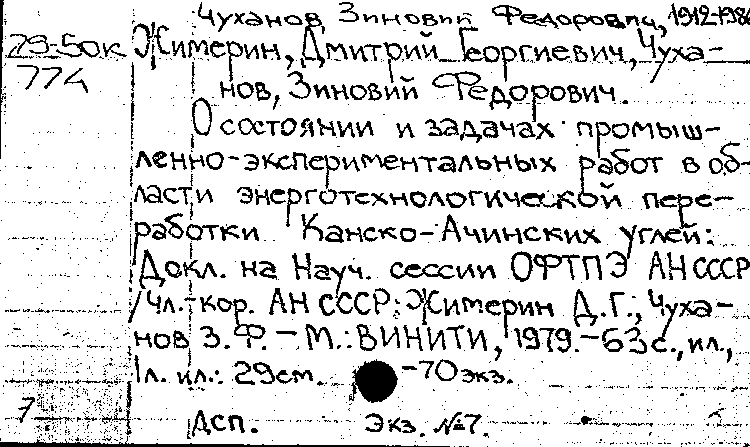 Чуханов, Зиновий Федорович, 1912-198
29-50к Жимерин, Дмитрий Георгиевич, Чуха-
774 нов, Зиновий Федорович.
О состоянии и задачах промыш-
ленно-экспериментальных работ в об-
ласти энерготехнологической пере-
работки Канско-Ачинских углей:
Докл. на Науч. сессии ОФТПЭ АН СССР
/Чл.-кор. АН СССР: Жимерин Д.Г., Чуха-
нов З.Ф. – М.: ВИНИТИ, 1979.–63с., ил.,
1л. ил.: 29см. –70экз.
7 ДСП. Экз. №7.